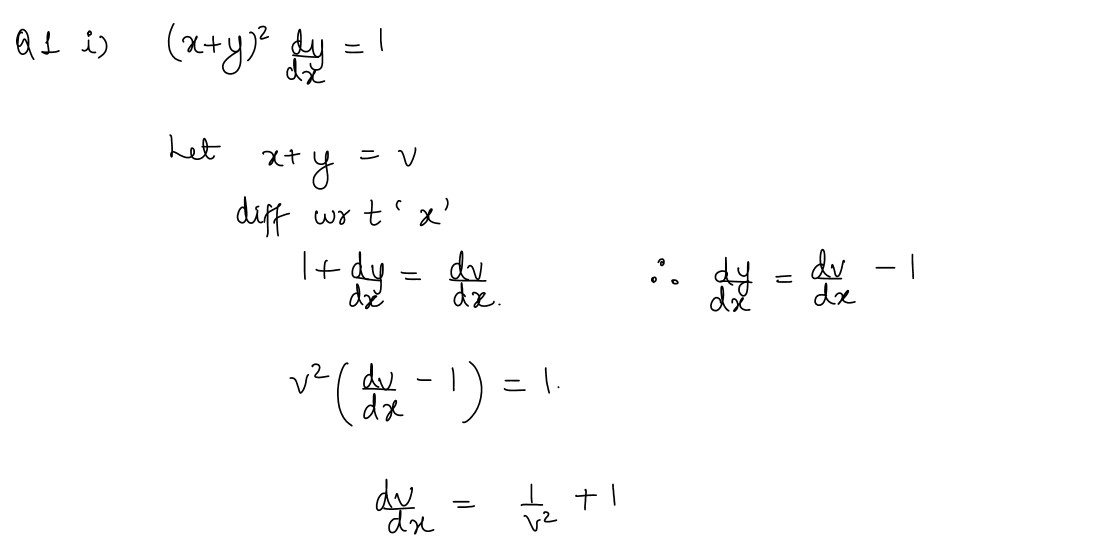 Q1 i) (x+y)² dy/dx = 1
Let x+y = v
diff wr t ‘x’
1+ dy/dx = dv/dx. ∴ dy/dx = dv/dx − 1
v² (dv/dx − 1) = 1.
dv/dx = 1/v² + 1